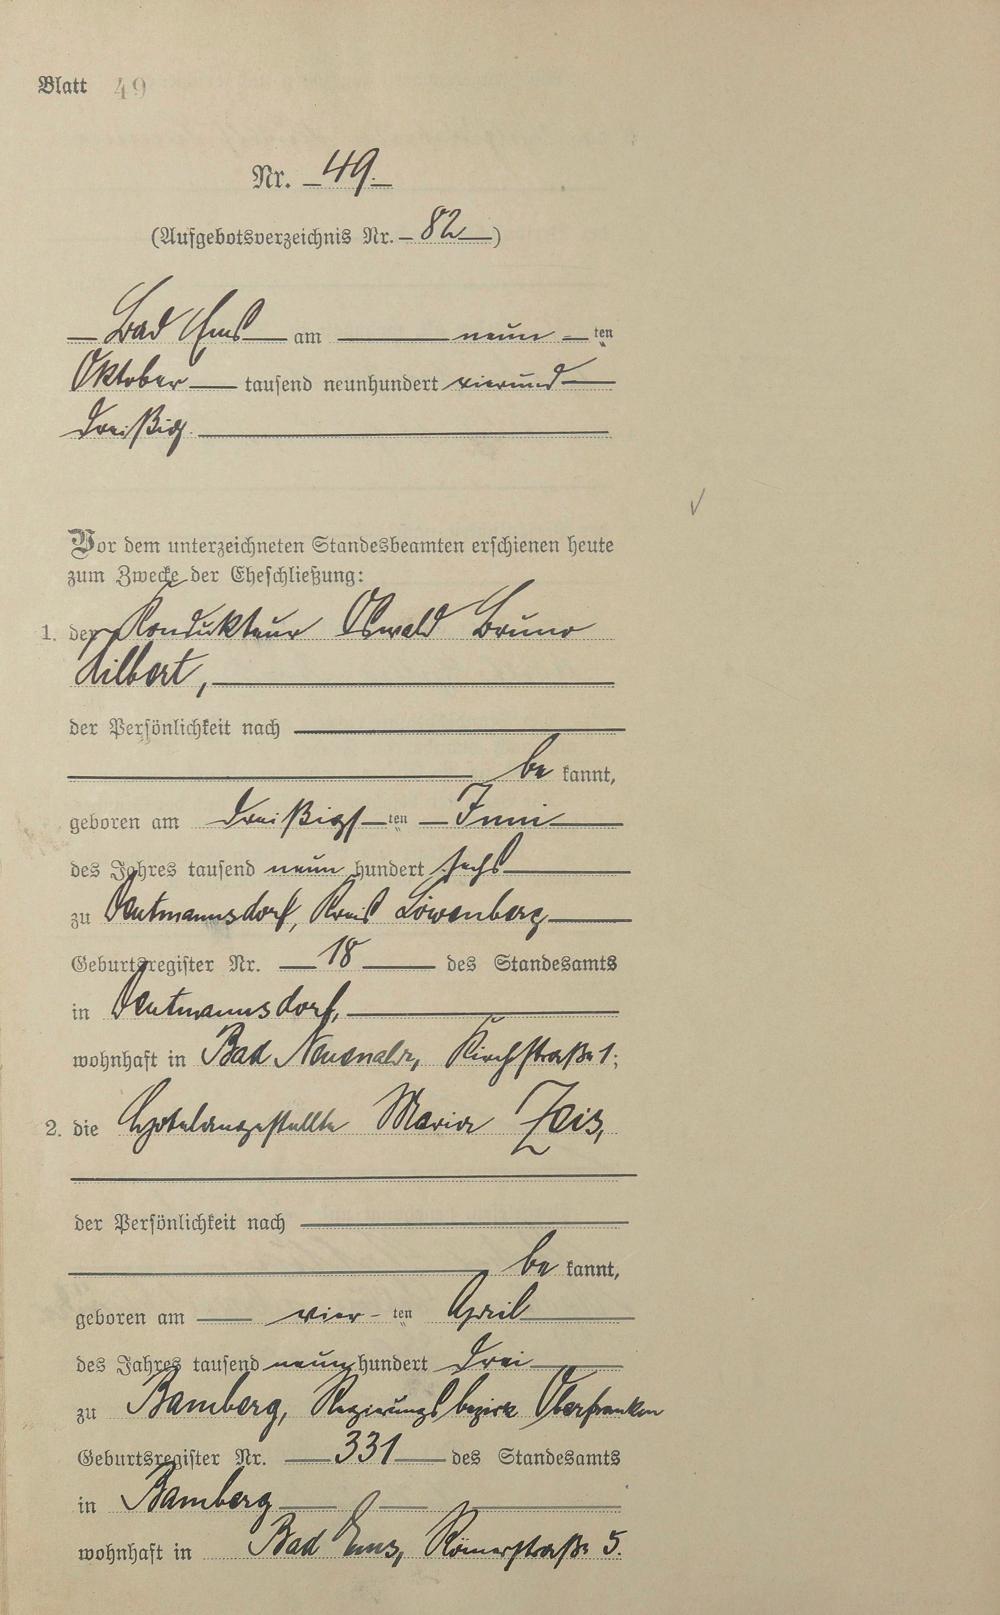 Blatt 49
Nr. 49.
(Aufgebotsverzeichnis Nr. 82)
Bad Ems am neun ten
Oktober tausend neunhundert vierund
dreißig.
Vor dem unterzeichneten Standesbeamten erschienen heute
zum Zwecke der Eheschließung:
1. der Kondukteur Oswald Bruno
Hilbert,
der Persönlichkeit nach
be kannt,
geboren am dreißigs ten Juni
des Jahres tausend neun hundert sechs
zu Deutmannsdorf, Kreis Löwenberg
Geburtsregister Nr. 18 des Standesamts
in Deutmannsdorf,
wohnhaft in Bad Neuenahr, Kirchstraße 1;
2. die Hotelangestellte Maria Zeis,
der Persönlichkeit nach
be kannt,
geboren am vier ten April
des Jahres tausend neun hundert drei
zu Bamberg, Regierungsbezirk Oberfranken
Geburtsregister Nr. 331 des Standesamts
in Bamberg
wohnhaft in Bad Ems, Römerstraße 5.